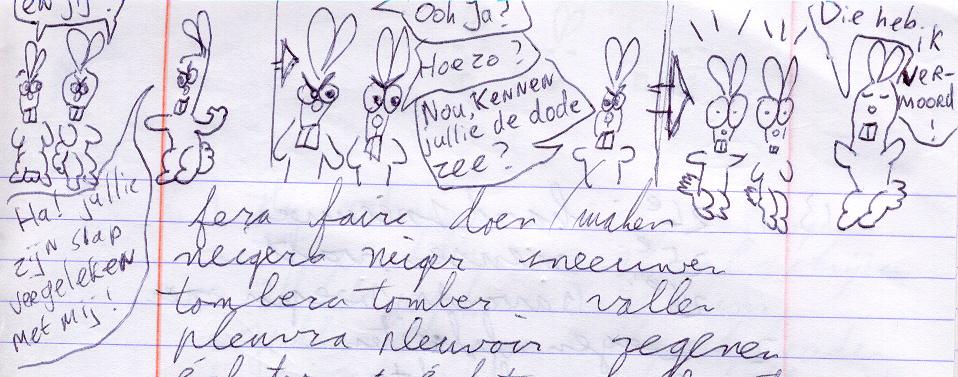 en jij?
Ha! jullie
zijn slap
veegeleken
met mij!
Ooh Ja?
Hoezo?
Nou, kennen
jullie de dode
zee?
Die heb
ik
ver-
moord
!
fera faire doen/maken
neigera neiger sneeuwen
tombera tomber vallen
pleuvra pleuvoir regenen